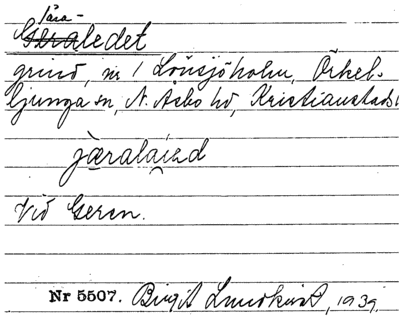 Jära-
Geraledet
grind, nr 1 Lönsjöholm, Örkel-
ljunga sn, N. Asbo hd, Kristianstads l
jæralaizd
Vid Geren.
Nr 5507. Birgit Lundkvist, 1939.